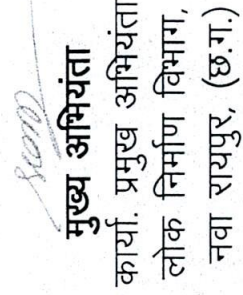 मुख्य अभियंता
कार्या. प्रमुख अभियंता
लोक निर्माण विभाग,
नवा रायपुर, (छ.ग.)